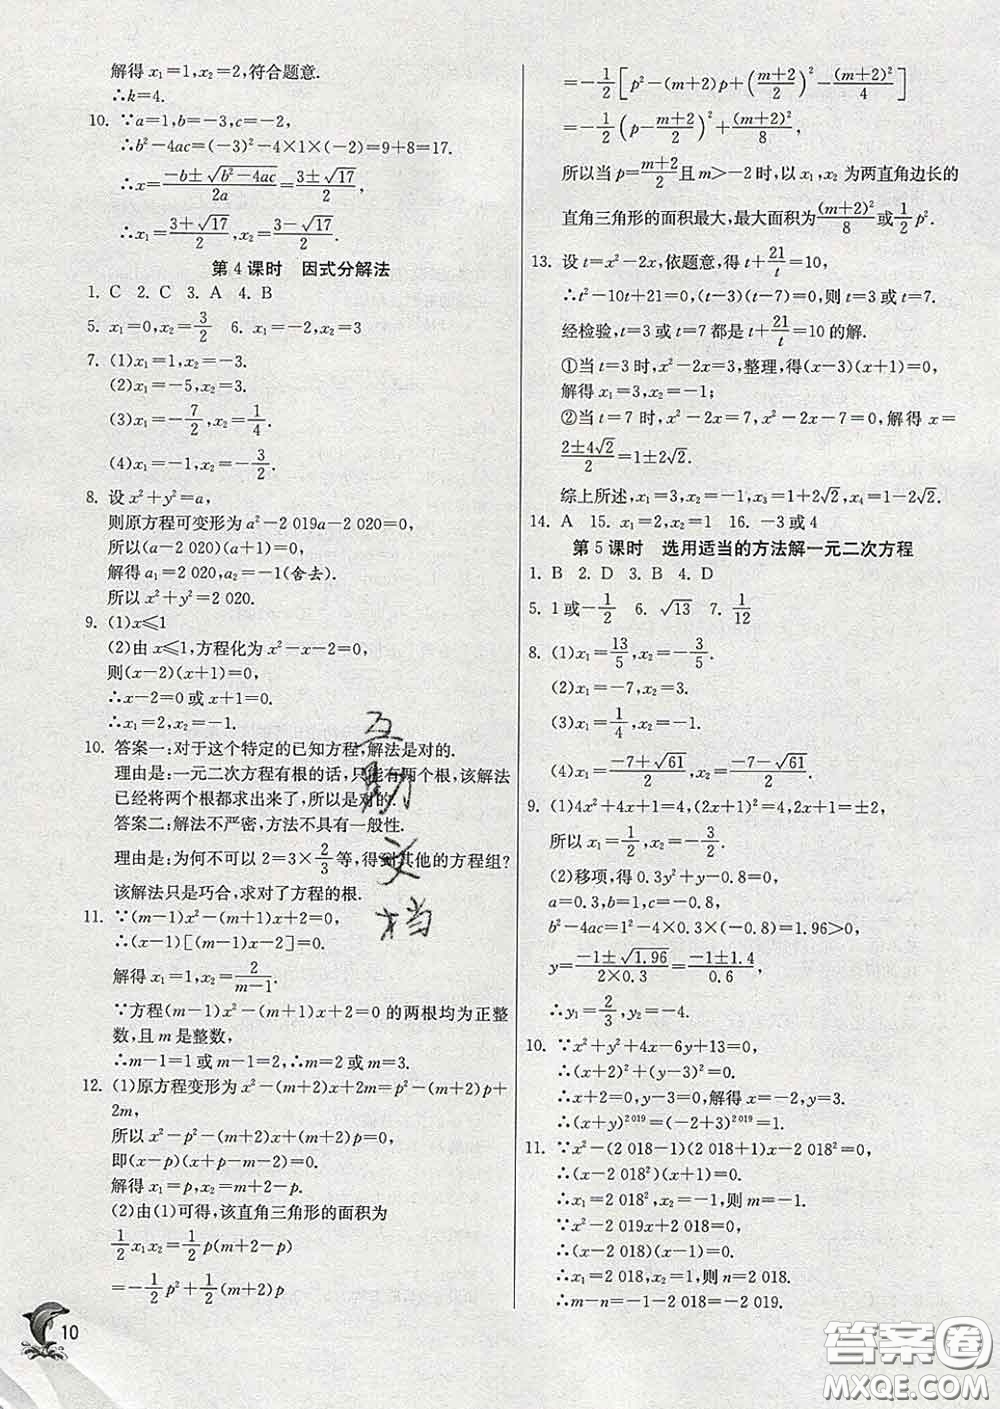 解得 x₁=1,x₂=2,符合题意.
∴k=4.
10. ∵a=1,b=-3,c=-2,
∴b²-4ac=(-3)²-4×1×(-2)=9+8=17.
∴x=(-b±√(b²-4ac))/2a=(3±√17)/2,
∴x₁=(3+√17)/2,x₂=(3-√17)/2.
第 4 课时 因式分解法
1. C 2. C 3. A 4. B
5. x₁=0,x₂=3/2 6. x₁=-2,x₂=3
7. (1)x₁=1,x₂=-3.
(2)x₁=-5,x₂=3.
(3)x₁=-7/2,x₂=1/4.
(4)x₁=-1,x₂=-3/2.
8. 设 x²+y²=a,
则原方程可变形为 a²-2 019a-2 020=0,
所以(a-2 020)(a+1)=0,
解得 a₁=2 020,a₂=-1(舍去).
所以 x²+y²=2 020.
9. (1)x≤1
(2)由 x≤1,方程化为 x²-x-2=0,
则(x-2)(x+1)=0,
∴x-2=0 或 x+1=0,
∴x₁=2,x₂=-1.
10. 答案一:对于这个特定的已知方程,解法是对的.
理由是:一元二次方程有根的话,只能有两个根,该解法
已经将两个根都求出来了,所以是对的.
答案二:解法不严密,方法不具有一般性.
理由是:为何不可以 2=3×2/3等,得到其他的方程组?
该解法只是巧合,求对了方程的根.
11. ∵(m-1)x²-(m+1)x+2=0,
∴(x-1)[(m-1)x-2]=0.
解得 x₁=1,x₂=2/(m-1).
∵方程(m-1)x²-(m+1)x+2=0 的两根均为正整
数,且 m 是整数,
∴m-1=1 或 m-1=2,∴m=2 或 m=3.
12. (1)原方程变形为 x²-(m+2)x+2m=p²-(m+2)p+
2m,
所以 x²-p²-(m+2)x+(m+2)p=0,
即(x-p)(x+p-m-2)=0.
解得 x₁=p,x₂=m+2-p.
(2)由(1)可得,该直角三角形的面积为
1/2 x₁x₂=1/2 p(m+2-p)
=-1/2 p²+1/2(m+2)p
10
=-1/2[p²-(m+2)p+((m+2)/2)²-(m+2)²/4]
=-1/2(p-(m+2)/2)²+(m+2)²/8,
所以当 p=(m+2)/2且 m>-2 时,以 x₁,x₂ 为两直角边长的
直角三角形的面积最大,最大面积为(m+2)²/8或1/2 p².
13. 设 t=x²-2x,依题意,得 t+21/t=10,
∴t²-10t+21=0,(t-3)(t-7)=0,则 t=3 或 t=7.
经检验,t=3 或 t=7 都是 t+21/t=10 的解.
①当 t=3 时,x²-2x=3,整理,得(x-3)(x+1)=0,
解得 x₁=3,x₂=-1;
②当 t=7 时,x²-2x=7,x²-2x-7=0,解得 x=
(2±4√2)/2=1±2√2.
综上所述,x₁=3,x₂=-1,x₃=1+2√2,x₄=1-2√2.
14. A 15. x₁=2,x₂=1 16. -3或4
第 5 课时 选用适当的方法解一元二次方程
1. B 2. D 3. B 4. D
5. 1 或-1/2 6. √13 7. 1/12
8. (1)x₁=13/5,x₂=-3/5.
(2)x₁=-7,x₂=3.
(3)x₁=1/4,x₂=-4.
(4)x₁=(-7+√61)/2,x₂=(-7-√61)/2.
9. (1)4x²+4x+1=4,(2x+1)²=4,2x+1=±2,
所以 x₁=1/2,x₂=-3/2.
(2)移项,得 0.3y²+y-0.8=0,
a=0.3,b=1,c=-0.8,
b²-4ac=1²-4×0.3×(-0.8)=1.96>0,
y=(-1±√1.96)/(2×0.3)=(-1±1.4)/0.6,
∴y₁=2/3,y₂=-4.
10. ∵x²+y²+4x-6y+13=0,
∴(x+2)²+(y-3)²=0,
∴x+2=0,y-3=0,解得 x=-2,y=3.
∴(x+y)²⁰¹⁹=(-2+3)²⁰¹⁹=1.
11. ∵x²-(2 018-1)(2 018+1)x-2 018²=0,
∴(x-2 018²)(x+1)=0,
∴x₁=2 018²,x₂=-1,则 m=-1.
∵x²-2 019x+2 018=0,
∴(x-2 018)(x-1)=0,
∴x₁=2 018,x₂=1,则 n=2 018.
∴m-n=-1-2 018=-2 019.
互助文档
答案圈
MXQE.COM